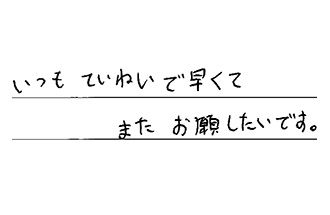 いつも ていねいで早くて
また お願したいです。